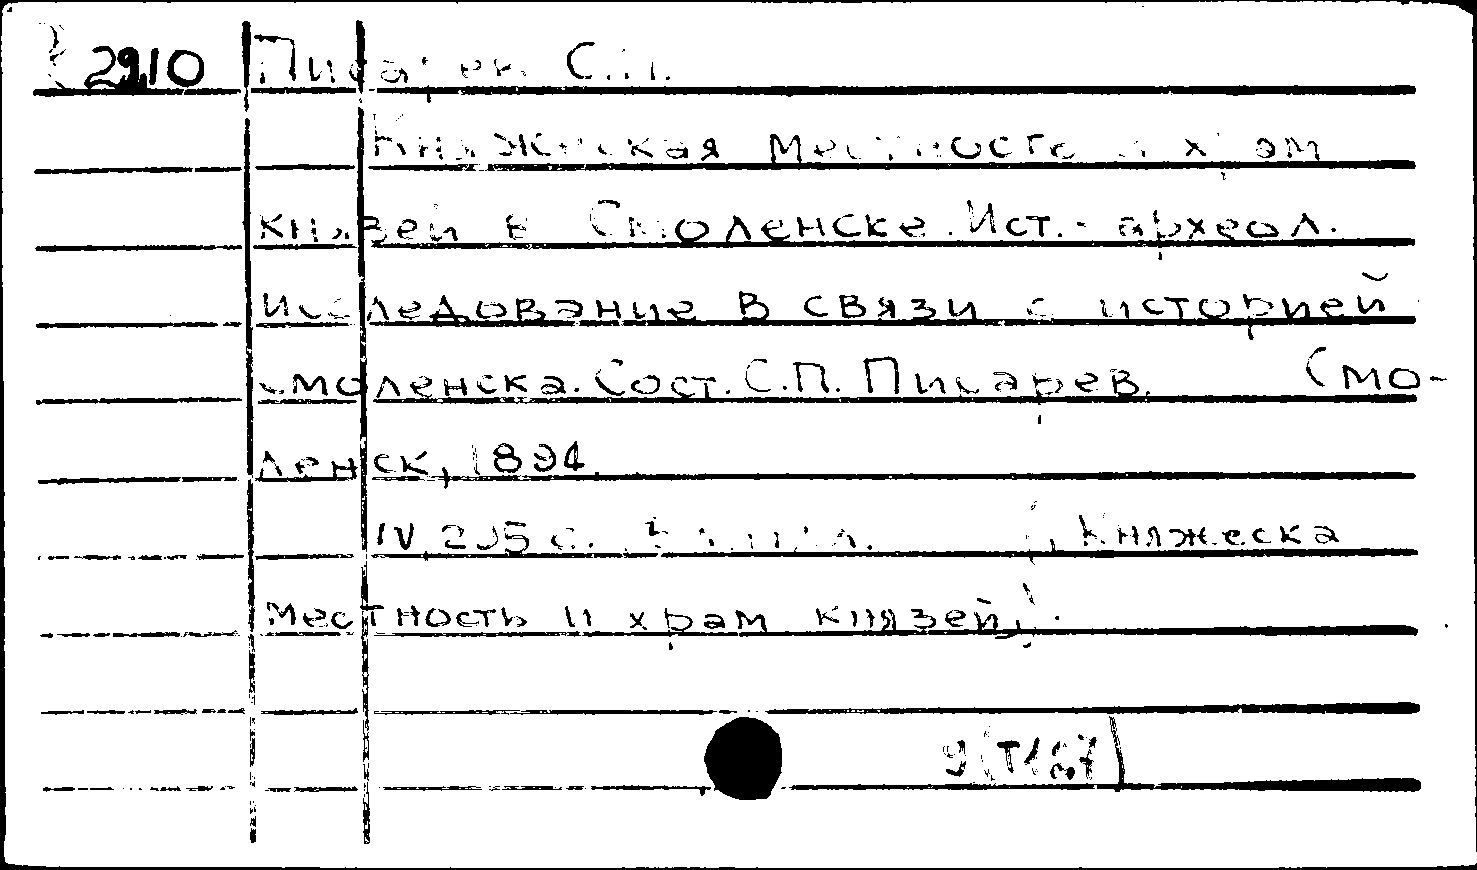 2910 Писарев С.П.
Княжеская местность и храм
князей в Смоленске. Ист.- археол.
исследование в связи с историей
Смоленска. Сост. С.П. Писарев. Смо-
ленск, 1894.
IV, 295 с.
Княжеска
местность и храм князей).
9(Т127)